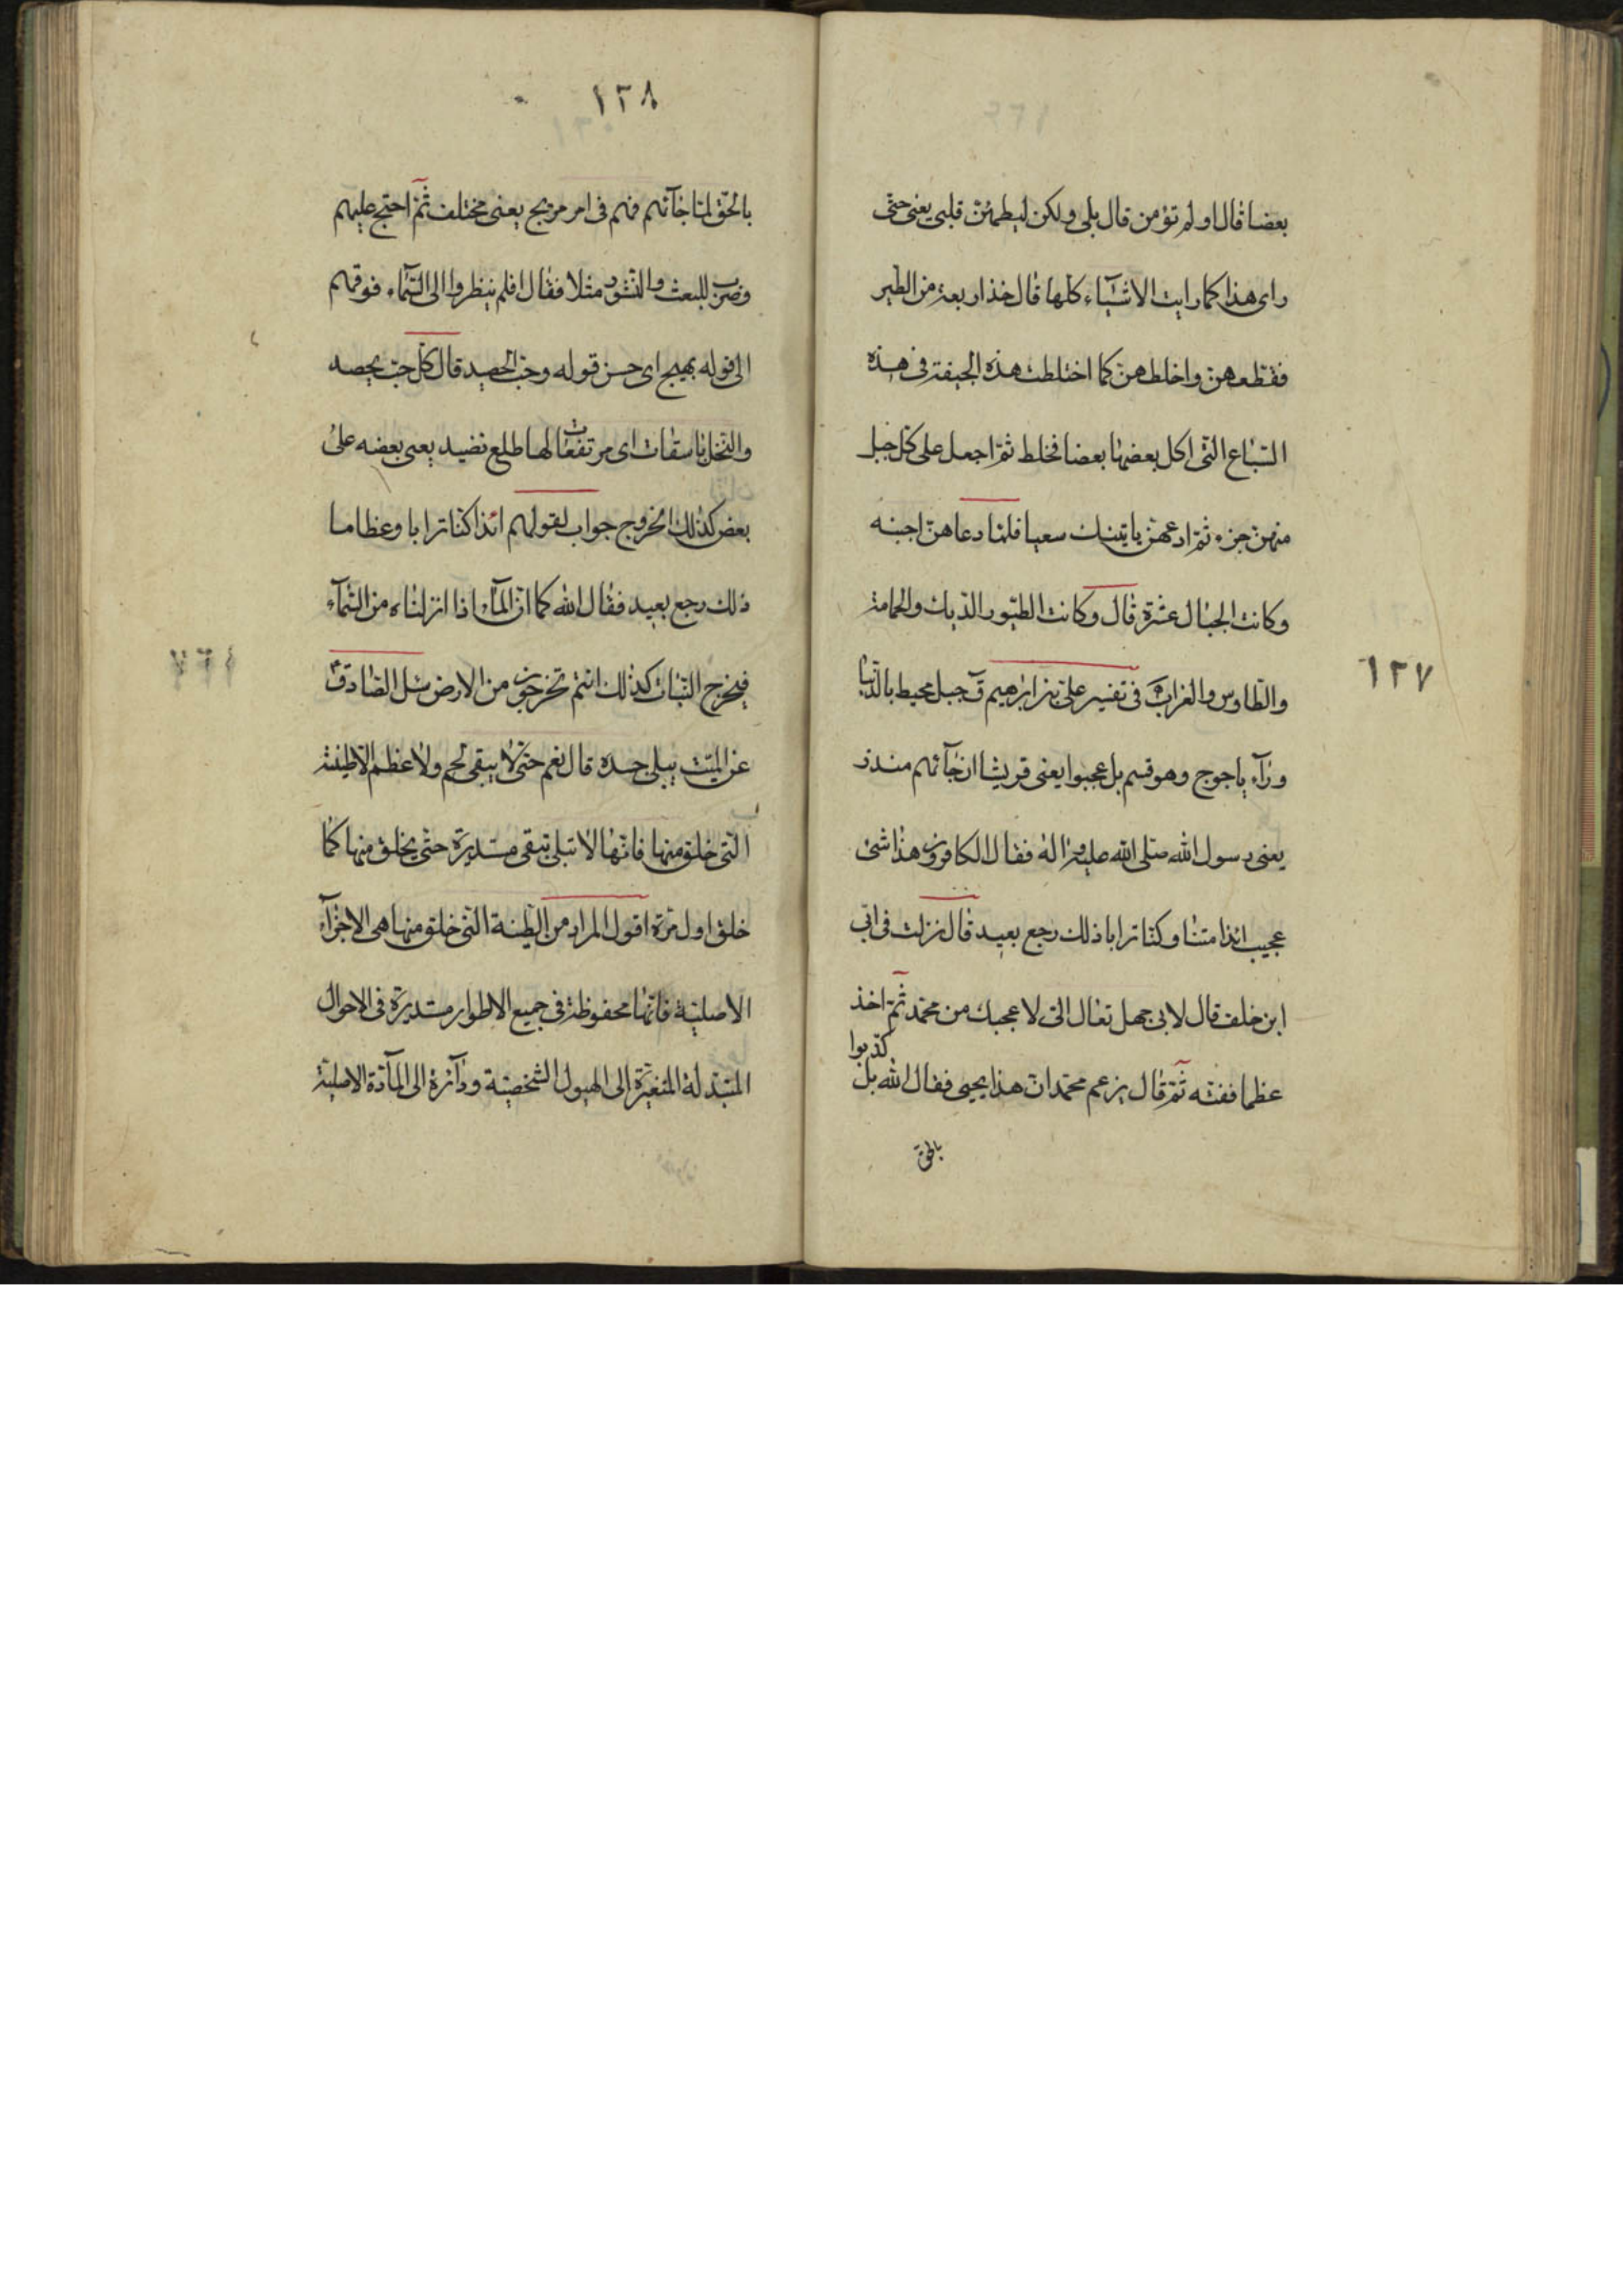 بعضا قال اولم تؤمن قال بلى ولكن ليطمئن قلبى يعنى حتى
راى هذا كما رايت الاشيآء كلها قال خذ اربعة من الطير
فقطعهن واخلطهن كما اختلطت هذه الجيفة فى هذه
السباع التى اكل بعضها بعضا فخلط ثم اجعل على كل جبل
منهن جزء ثم ادعهن ياتينك سعيا فلما دعاهن اجبنه
وكانت الجبال عشرة قال وكانت الطيور الديك والحمامة
١٣٧
والطاوس والغراب فى تفسير على بن ابراهيم ق جبل محيط بالدنيا
ورآء ياجوج وهو قسم بل عجبوا يعنى قريشا ان جآئهم منذر
يعنى رسول الله صلى الله عليه واله فقال الكافرون هذا شئ
عجيب ائذا متنا وكنا ترابا ذلك رجع بعيد قال نزلت فى ابى
ابن خلف قال لابى جهل تعال الى لاعجبك من محمد ثم اخذ
كذبوا
عظما ففته ثم قال يزعم محمد ان هذا يحيى فقال الله بل
بالحق
١٣٨
بالحق لما جآئهم فهم فى امر مريج يعنى مختلف ثم احتج عليهم
وضرب للبعث والنشور مثلا فقال افلم ينظروا الى السمآء فوقهم
الى قوله بهيج اى حسن قوله وحب الحصيد قال كل حب يحصد
والنخل باسقات اى مرتفعات لها طلع نضيد يعنى بعضه على
بعض كذلك الخروج جواب لقولهم ائذا كنا ترابا وعظاما
ذلك رجع بعيد فقال الله كما ان المآء اذا انزلناه من السمآء
فيخرج النبات كذلك انتم تخرجون من الارض سئل الصادق
عن الميت يبلى جسده قال نعم حتى لا يبقى لحم ولا عظم الا طينة
التى خلق منها فانها لا تبلى تبقى مستديرة حتى يخلق منها كما
خلق اول مرة اقول المراد من الطينة التى خلق منها هى الاجزآء
الاصلية فانها محفوظة فى جميع الاطوار مستديرة فى الاحوال
المتبدلة المتغيرة الى الهيول الشخصية ودآئرة الى المآدة الاصلية